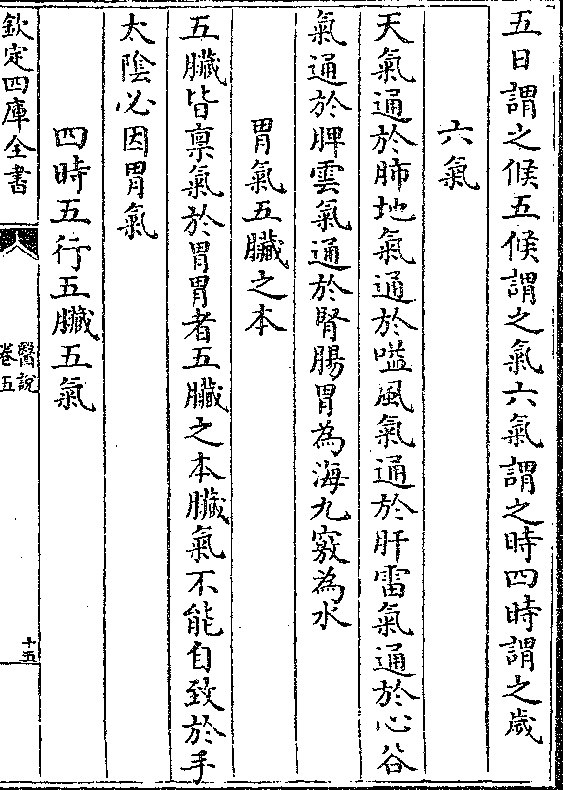 五日謂之候五候謂之氣六氣謂之時四時謂之歲
六氣
天氣通於肺地氣通於嗌風氣通於肝雷氣通於心谷
氣通於脾雲氣通於腎腸胃為海九竅為水
胃氣五臟之本
五臟皆禀氣於胃胃者五臟之本臟氣不能自致於手
太陰必因胃氣
四時五行五臟五氣
欽定四庫全書
醫說
卷五
十五